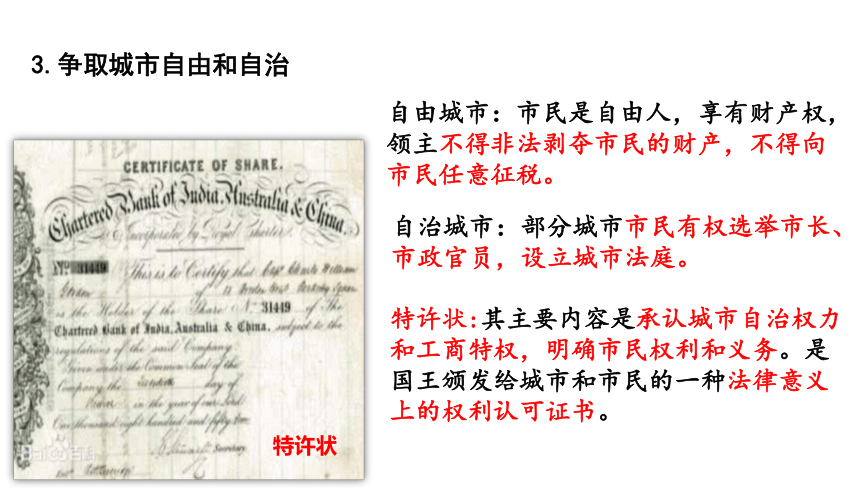 3.争取城市自由和自治
自由城市：市民是自由人，享有财产权，
领主不得非法剥夺市民的财产，不得向
市民任意征税。
自治城市：部分城市市民有权选举市长、
市政官员，设立城市法庭。
特许状:其主要内容是承认城市自治权力
和工商特权，明确市民权利和义务。是
国王颁发给城市和市民的一种法律意义
上的权利认可证书。
CERTIFICATE OF SHARE.
Chartered Bank of India, Australia & China.
Incorporated by Royal Charter.
No. 31449 This is to Certify that Capt. Charles William
Gordon of
is the Holder of the Share No. 31449 of The
Chartered Bank of India, Australia & China, subject to the
regulations of the said Company.
Given under the Common Seal of the
Company the day of
in the year of our Lord
One thousand eight hundred and fifty
Secretary
特许状
Baidu百科